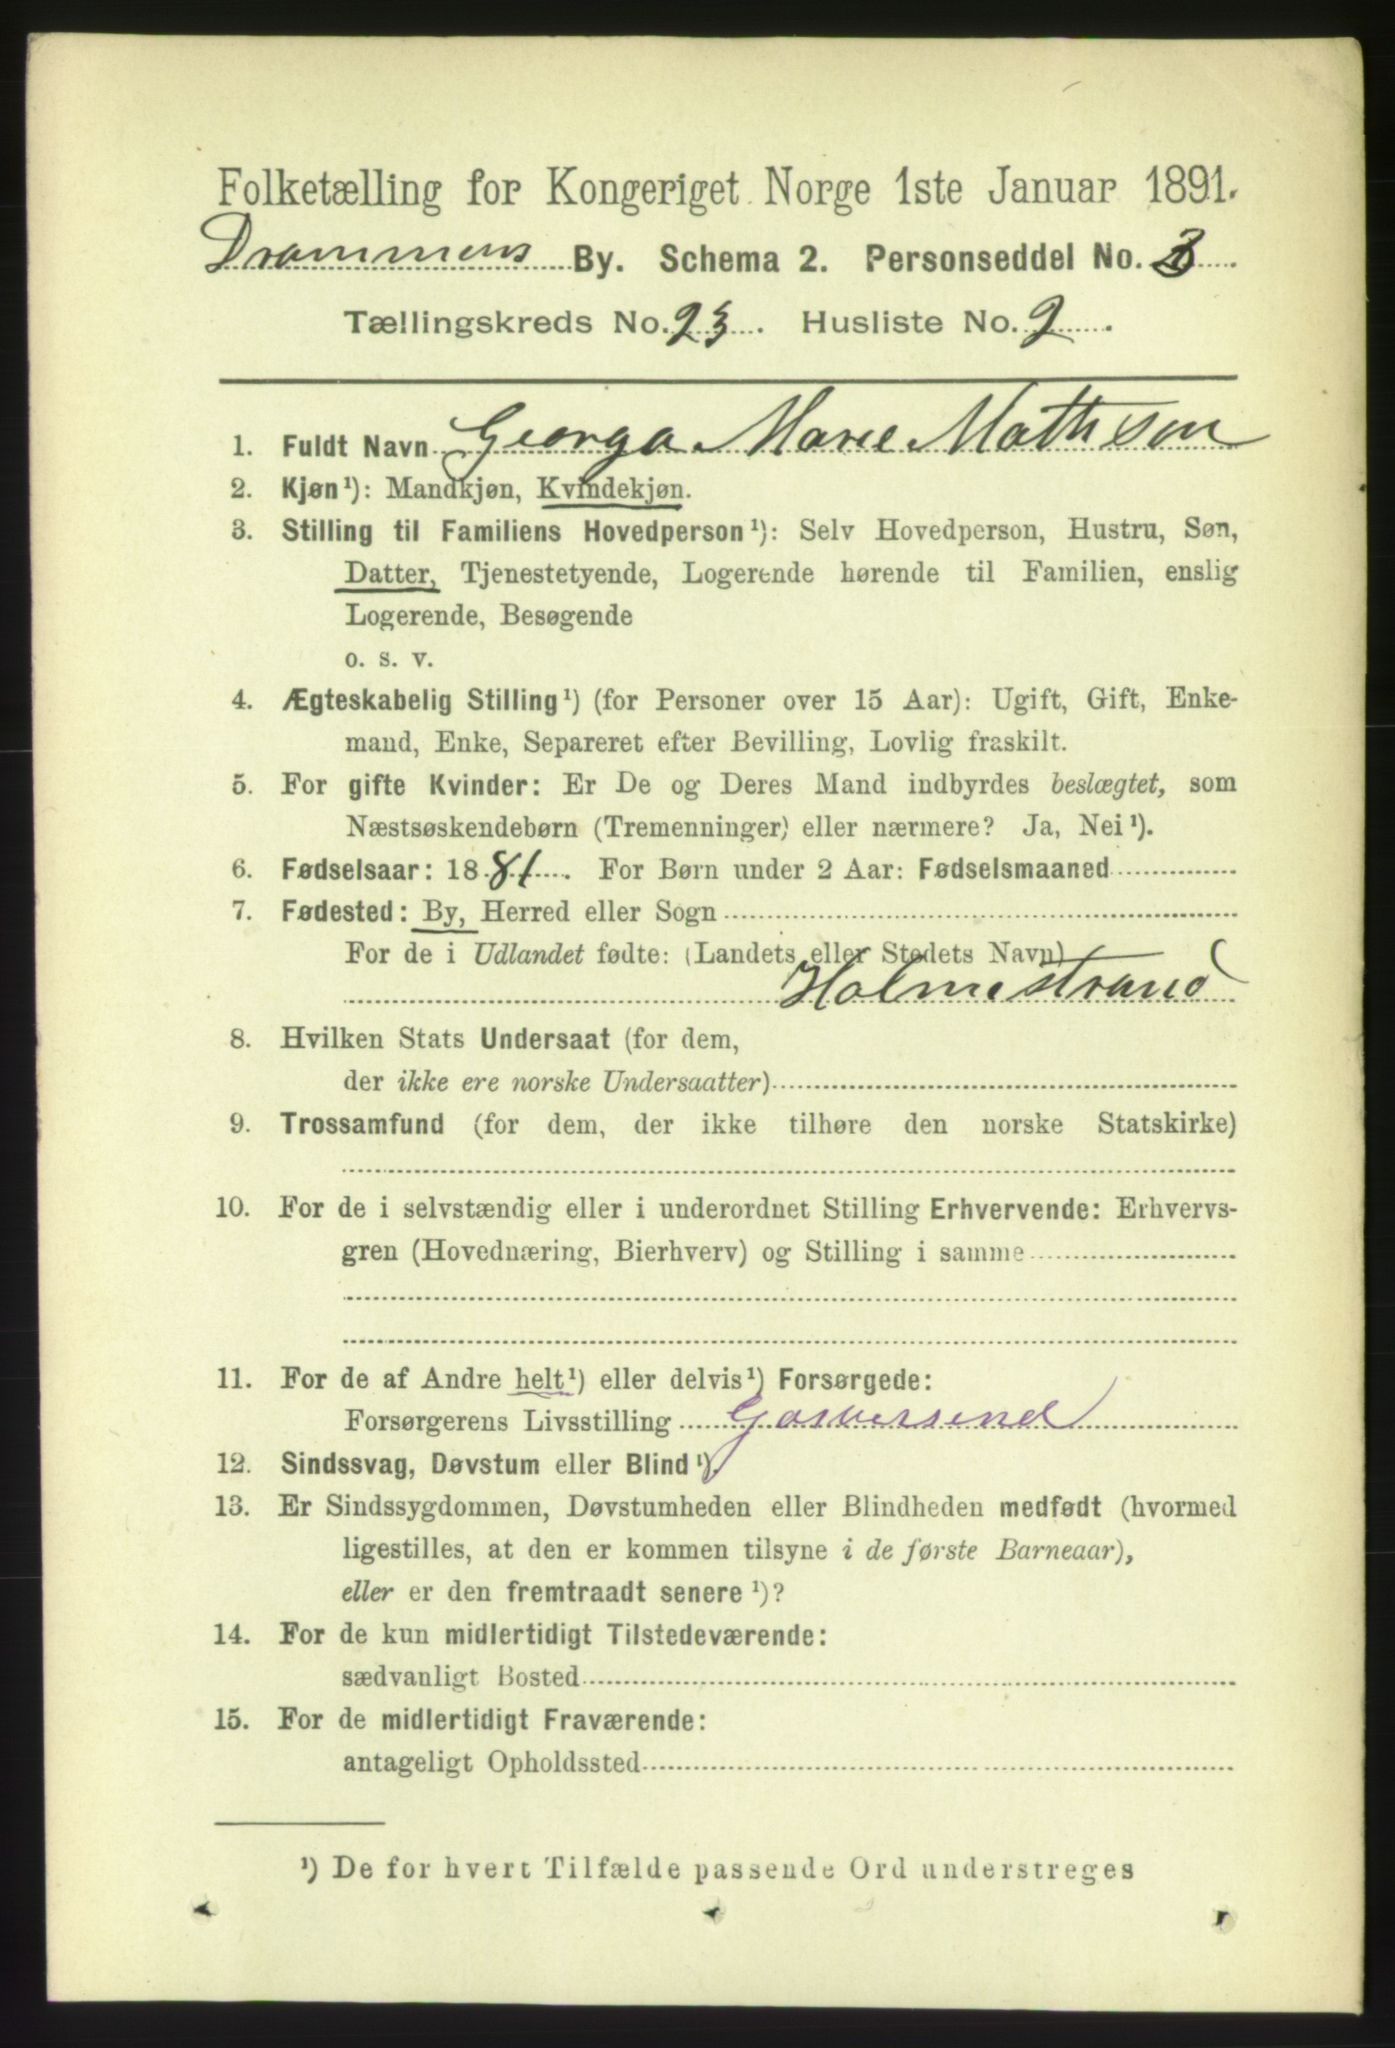 Folketælling for Kongeriget Norge 1ste Januar 1891.
Drammens By. Schema 2. Personseddel No. 3
Tællingskreds No. 23. Husliste No. 2
1. Fuldt Navn Georga Marie Mathisen
2. Kjøn¹): Mandkjøn, Kvindekjøn.
3. Stilling til Familiens Hovedperson¹): Selv Hovedperson, Hustru, Søn,
Datter, Tjenestetyende, Logerende hørende til Familien, enslig
Logerende, Besøgende
o. s. v.
4. Ægteskabelig Stilling¹) (for Personer over 15 Aar): Ugift, Gift, Enke-
mand, Enke, Separeret efter Bevilling, Lovlig fraskilt.
5. For gifte Kvinder: Er De og Deres Mand indbyrdes beslægtet, som
Næstsøskendebørn (Tremenninger) eller nærmere? Ja, Nei¹).
6. Fødselsaar: 1881. For Børn under 2 Aar: Fødselsmaaned
7. Fødested: By, Herred eller Sogn
For de i Udlandet fødte: (Landets eller Stedets Navn)
Holmestrand
8. Hvilken Stats Undersaat (for dem,
der ikke ere norske Undersaatter)
9. Trossamfund (for dem, der ikke tilhøre den norske Statskirke)
10. For de i selvstændig eller i underordnet Stilling Erhvervende: Erhvervs-
gren (Hovednæring, Bierhverv) og Stilling i samme
11. For de af Andre helt¹) eller delvis¹) Forsørgede:
Forsørgerens Livsstilling
12. Sindssvag, Døvstum eller Blind¹).
13. Er Sindssygdommen, Døvstumheden eller Blindheden medfødt (hvormed
ligestilles, at den er kommen tilsyne i de første Barneaar),
eller er den fremtraadt senere¹)?
14. For de kun midlertidigt Tilstedeværende:
sædvanligt Bosted
15. For de midlertidigt Fraværende:
antageligt Opholdssted
¹) De for hvert Tilfælde passende Ord understreges